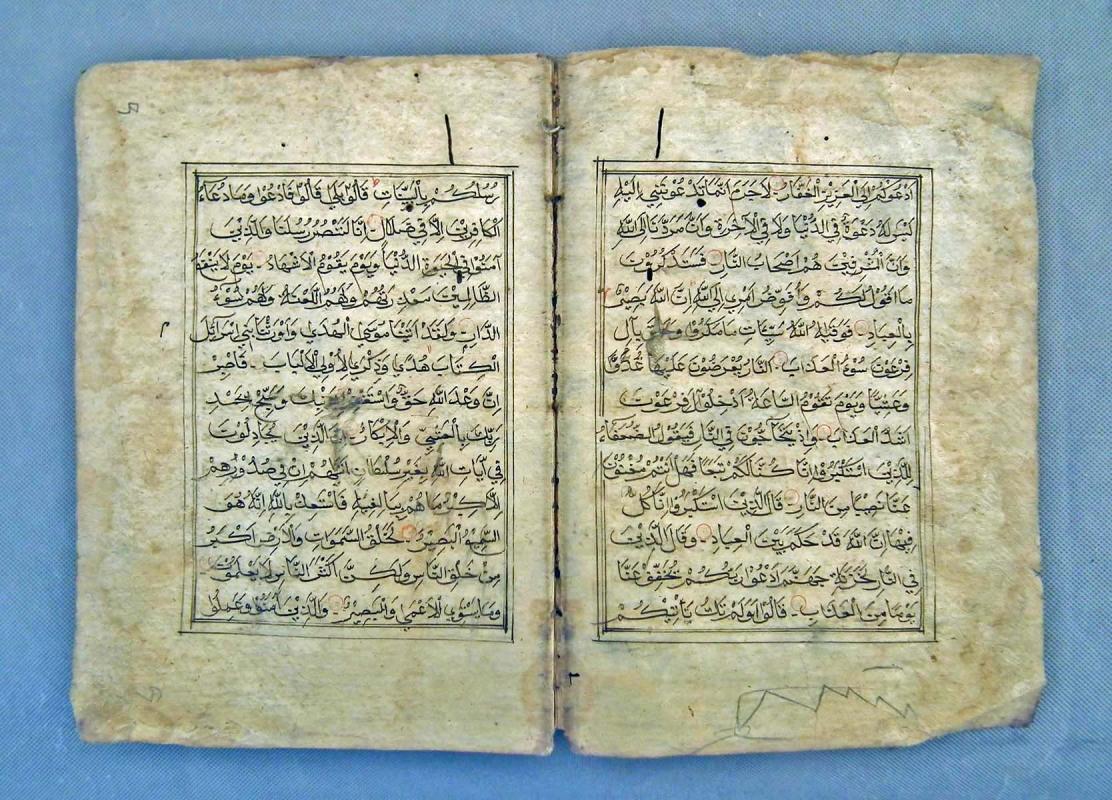 ادعوكم الى العزيز الغفار لاجرم انما تدعونني اليه
ليس له دعوة في الدنيا ولا في الآخرة وان مردنا الى الله
وان المسرفين هم اصحاب النار فستذكرون
ما اقول لكم وافوض امري الى الله ان الله بصير
بالعباد فوقيه الله سيئات ما مكروا وحاق بآل
فرعون سوء العذاب النار يعرضون عليها غدوا
وعشيا ويوم تقوم الساعة ادخلوا آل فرعون
اشد العذاب واذ يتحاجون في النار فيقول الضعفاء
للذين استكبروا انا كنا لكم تبعا فهل انتم مغنون
عنا نصيبا من النار قال الذين استكبروا انا كل
فيها ان الله قد حكم بين العباد وقال الذين
في النار لخزنة جهنم ادعوا ربكم يخفف عنا
يوما من العذاب قالوا اولم تك تأتيكم
رسلكم بالبينات قالوا بلى قالوا فادعوا وما دعاء
الكافرين الا في ضلال انا لننصر رسلنا والذين
آمنوا في الحيوة الدنيا ويوم يقوم الاشهاد يوم لا ينفع
الظالمين معذرتهم ولهم اللعنة ولهم سوء
الدار ولقد اتينا موسى الهدي واورثنا بني اسرآئل
الكتاب هدي وذكرى لاولي الالباب فاصبر
ان وعد الله حق واستغفر لذنبك وسبح بحمد
ربك بالعشي والابكار ان الذين يجادلون
في آيات الله بغير سلطان اتيهم ان في صدورهم
الا كبر ما هم ببالغيه فاستعذ بالله انه هو
السميع البصير لخلق السموات والارض اكبر
من خلق الناس ولكن اكثر الناس لا يعلمون
وما يستوي الاعمي والبصير والذين آمنوا وعملوا